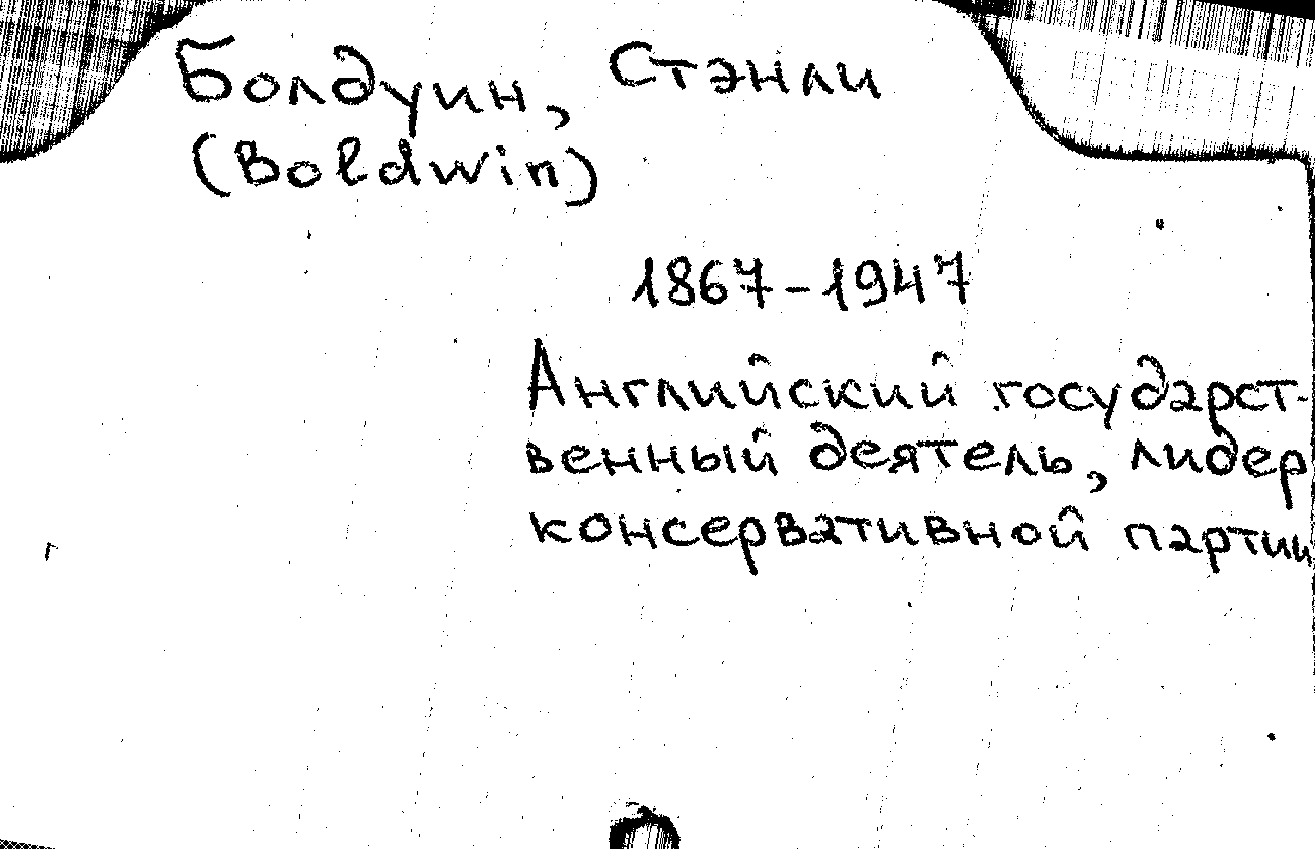 Болдуин, Стэнли
(Boldwin)
1867-1947
Английский государст-
венный деятель, лидер
консервативной партии